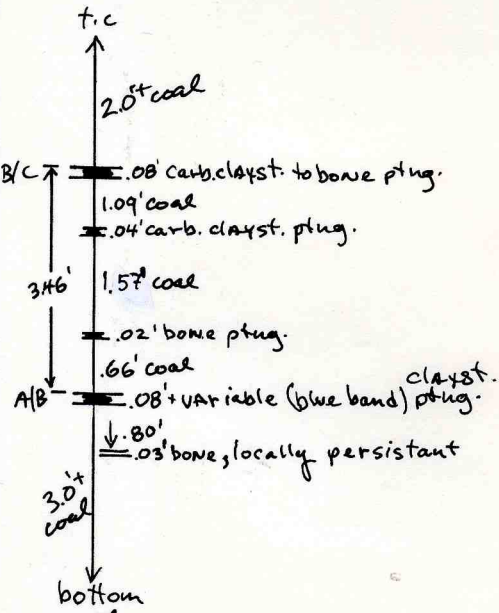 t.c
2.0'+ coal
B/C .08' carb. clayst. to bone ptng.
1.09' coal
.04' carb. clayst. ptng.
3.46' 1.57' coal
.02' bone ptng.
.66' coal
A/B .08'+ variable (blue band) clayst. ptng.
.80'
.03' bone, locally persistant
3.0'+ coal
bottom